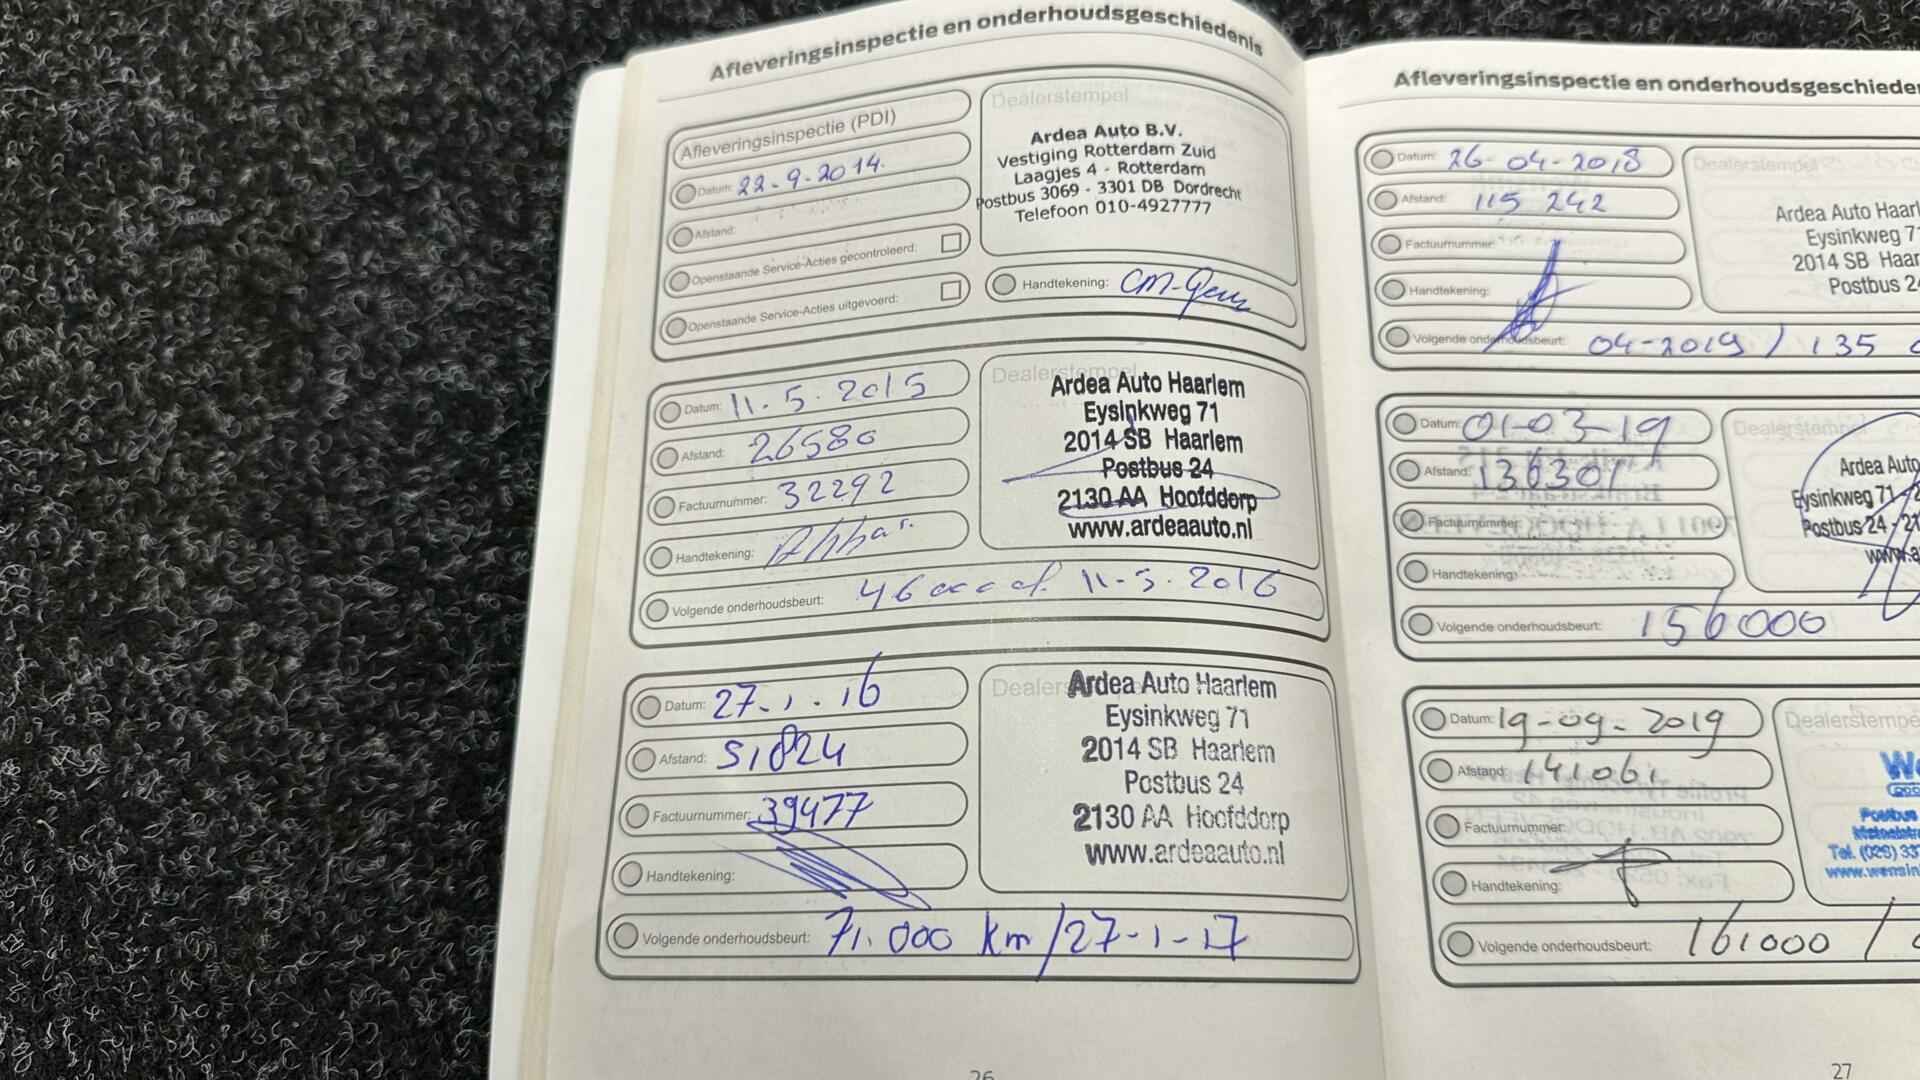 Afleveringsinspectie en onderhoudsgeschiedenis
Afleveringsinspectie (PDI)
Datum: 22-9-2014.
Afstand:
Openstaande Service-Acties gecontroleerd:
Openstaande Service-Acties uitgevoerd:
Dealerstempel
Ardea Auto B.V.
Vestiging Rotterdam Zuid
Laagjes 4 - Rotterdam
Postbus 3069 - 3301 DB Dordrecht
Telefoon 010-4927777
Handtekening:
Datum: 11.5.2015
Afstand: 26580
Factuurnummer: 32292
Handtekening:
Volgende onderhoudsbeurt: 46000 of 11-5.2016
Dealerstempel
Ardea Auto Haarlem
Eysinkweg 71
2014 SB Haarlem
Postbus 24
2130 AA Hoofddorp
www.ardeaauto.nl
Datum: 27.1.16
Afstand: 51824
Factuurnummer: 39477
Handtekening:
Volgende onderhoudsbeurt: 71.000 km/27-1-17
Ardea Auto Haarlem
Eysinkweg 71
2014 SB Haarlem
Postbus 24
2130 AA Hoofddorp
www.ardeaauto.nl
26
Afleveringsinspectie en
Datum: 26-04-2018
Afstand: 115 242
Factuurnummer:
Handtekening:
Volgende onderhoudsbeurt: 04-2019 / 135
Dealerstempel
Ardea Auto
Eysinkweg
2014 SB
Postbus
Datum: 01-03-19
Afstand: 136301
Factuurnummer:
Handtekening:
Volgende onderhoudsbeurt: 156000
Dealerstempel
Ardea Auto
Eysinkweg 71
Postbus 24
Datum: 19-09-2019
Afstand: 141061
Factuurnummer:
Handtekening:
Volgende onderhoudsbeurt: 161000 /
Postbus
Tel. (029) 33
27